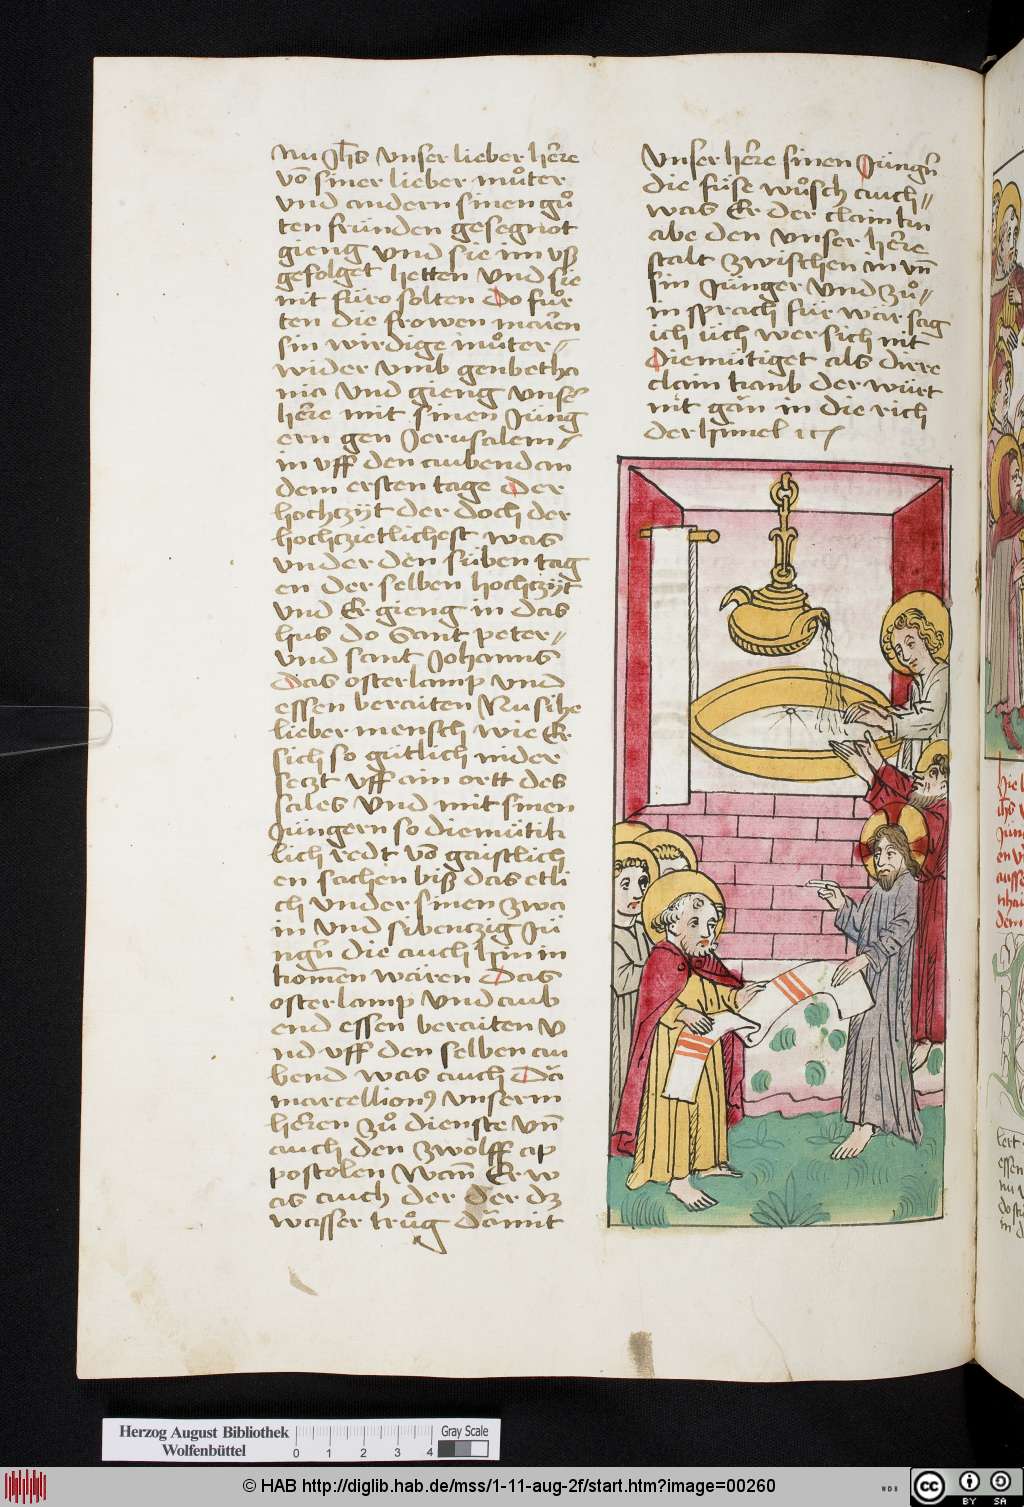 Nu Jh̄s vnser lieber herre
vō siner lieber muͦter
vnd andern sinen guͦ
ten fründen gesegnot
gieng vnd sie im vß
gefolget hetten vnd sie
nit füro solten Do fuͦr
ten die frowen marien
sin wirdige muͦter
wider vmb gen betha
nia vnd gieng vnser
herre mit sinen Jüng
ern gen Jerusalem
in vff den aubend an
dem ersten tage Der
hochzÿt der doch der
hochzietlichest was
vnder den süben tag
en der selben hochzÿt
vnd Er gieng in das
hus do Sant peter
vnd sant Johanns
Das osterlamp vnd
essen beraiten Nu sihe
lieber mensch wie Er
sich so gütlich nider
seczt vff ain ortt des
sales vnd mit sinen
Jüngern so diemütik
lich redt vō gaistlich
en sachen biß das etli
ch vnder sinen zwa
in vnd sibenczig Jü
ngrn die auch hin in
komen wären Das
osterlamp vnd aub
end essen beraiten v
nd vff den selben au
bend was auch Da
marcellion9 vnserm
herren zuͦ dienste vn̄
auch den zwölff ap
postolen Wan̄ Er w
as auch der der dz
wasser truͦg damit
vnser herre sinen Jüngrn
die füse wuͦsch auch
was Er der clain kn
abe den vnser herre
stalt zwischen in vn̄
sin Jünger vnd zuͦ
in sprach für wär sag
ich üch wer sich nit
Diemütiget als dirre
clain knab der würt
nit gän in die rich
der himel ⁊c
Herzog August Bibliothek
Wolfenbüttel
0 1 2 3 4
Gray Scale
© HAB http://diglib.hab.de/mss/1-11-aug-2f/start.htm?image=00260
cc BY SA